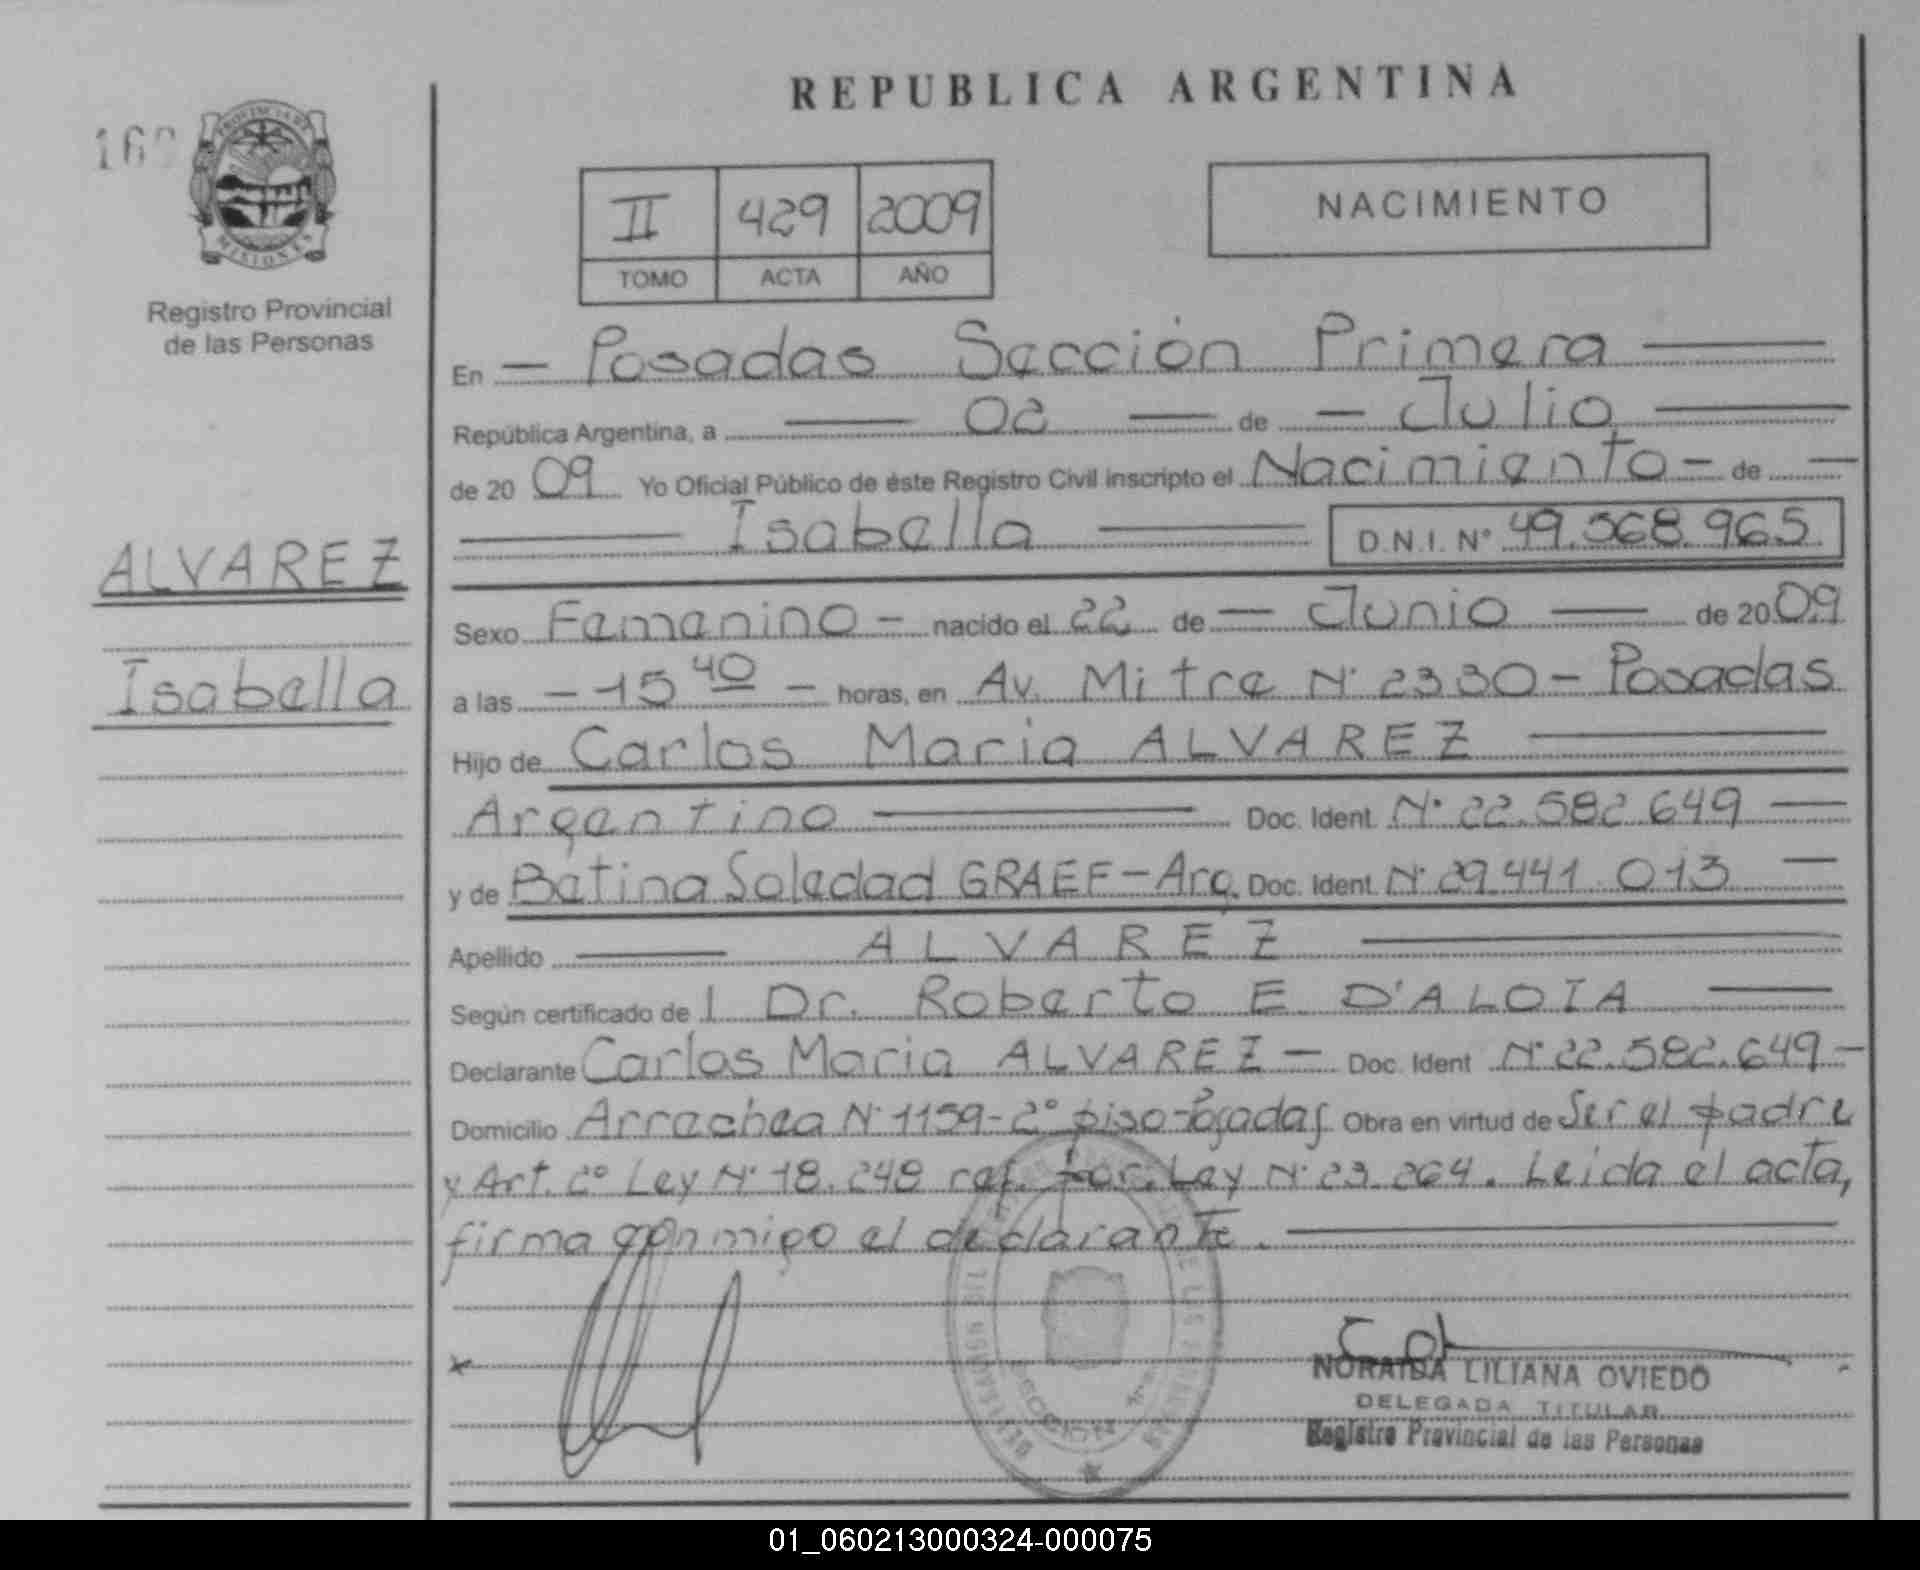 REPUBLICA ARGENTINA
PROVINCIA DE
MISIONES
Registro Provincial
de las Personas
II 429 2009
TOMO ACTA AÑO
NACIMIENTO
En — Posadas Sección Primera —
República Argentina, a — 02 — de — Julio —
de 20 09 Yo Oficial Público de éste Registro Civil inscripto el Nacimiento — de —
— Isabella — D.N.I. Nº 49.568.965
ALVAREZ
Isabella
Sexo Femenino — nacido el 22 de — Junio — de 2009
a las — 15 40 — horas, en Av. Mitre Nº 2330 — Posadas
Hijo de Carlos Maria ALVAREZ —
Argentino — Doc. Ident. Nº 22.582.649 —
y de Betina Soledad GRAEF — Arg. Doc. Ident. Nº 29.441.013 —
Apellido — ALVAREZ —
Según certificado de l Dr. Roberto E. D'ALOIA —
Declarante Carlos Maria ALVAREZ — Doc. Ident Nº 22.582.649 —
Domicilio Arrechea Nº 1159 - 2º piso - Posadas Obra en virtud de Ser el padre
y Art. 2º Ley Nº 18.248 ref. por Ley Nº 23.264. Leida el acta,
firma conmigo el declarante. —
NORAIDA LILIANA OVIEDO
DELEGADA TITULAR
Registro Provincial de las Personas
01_060213000324-000075